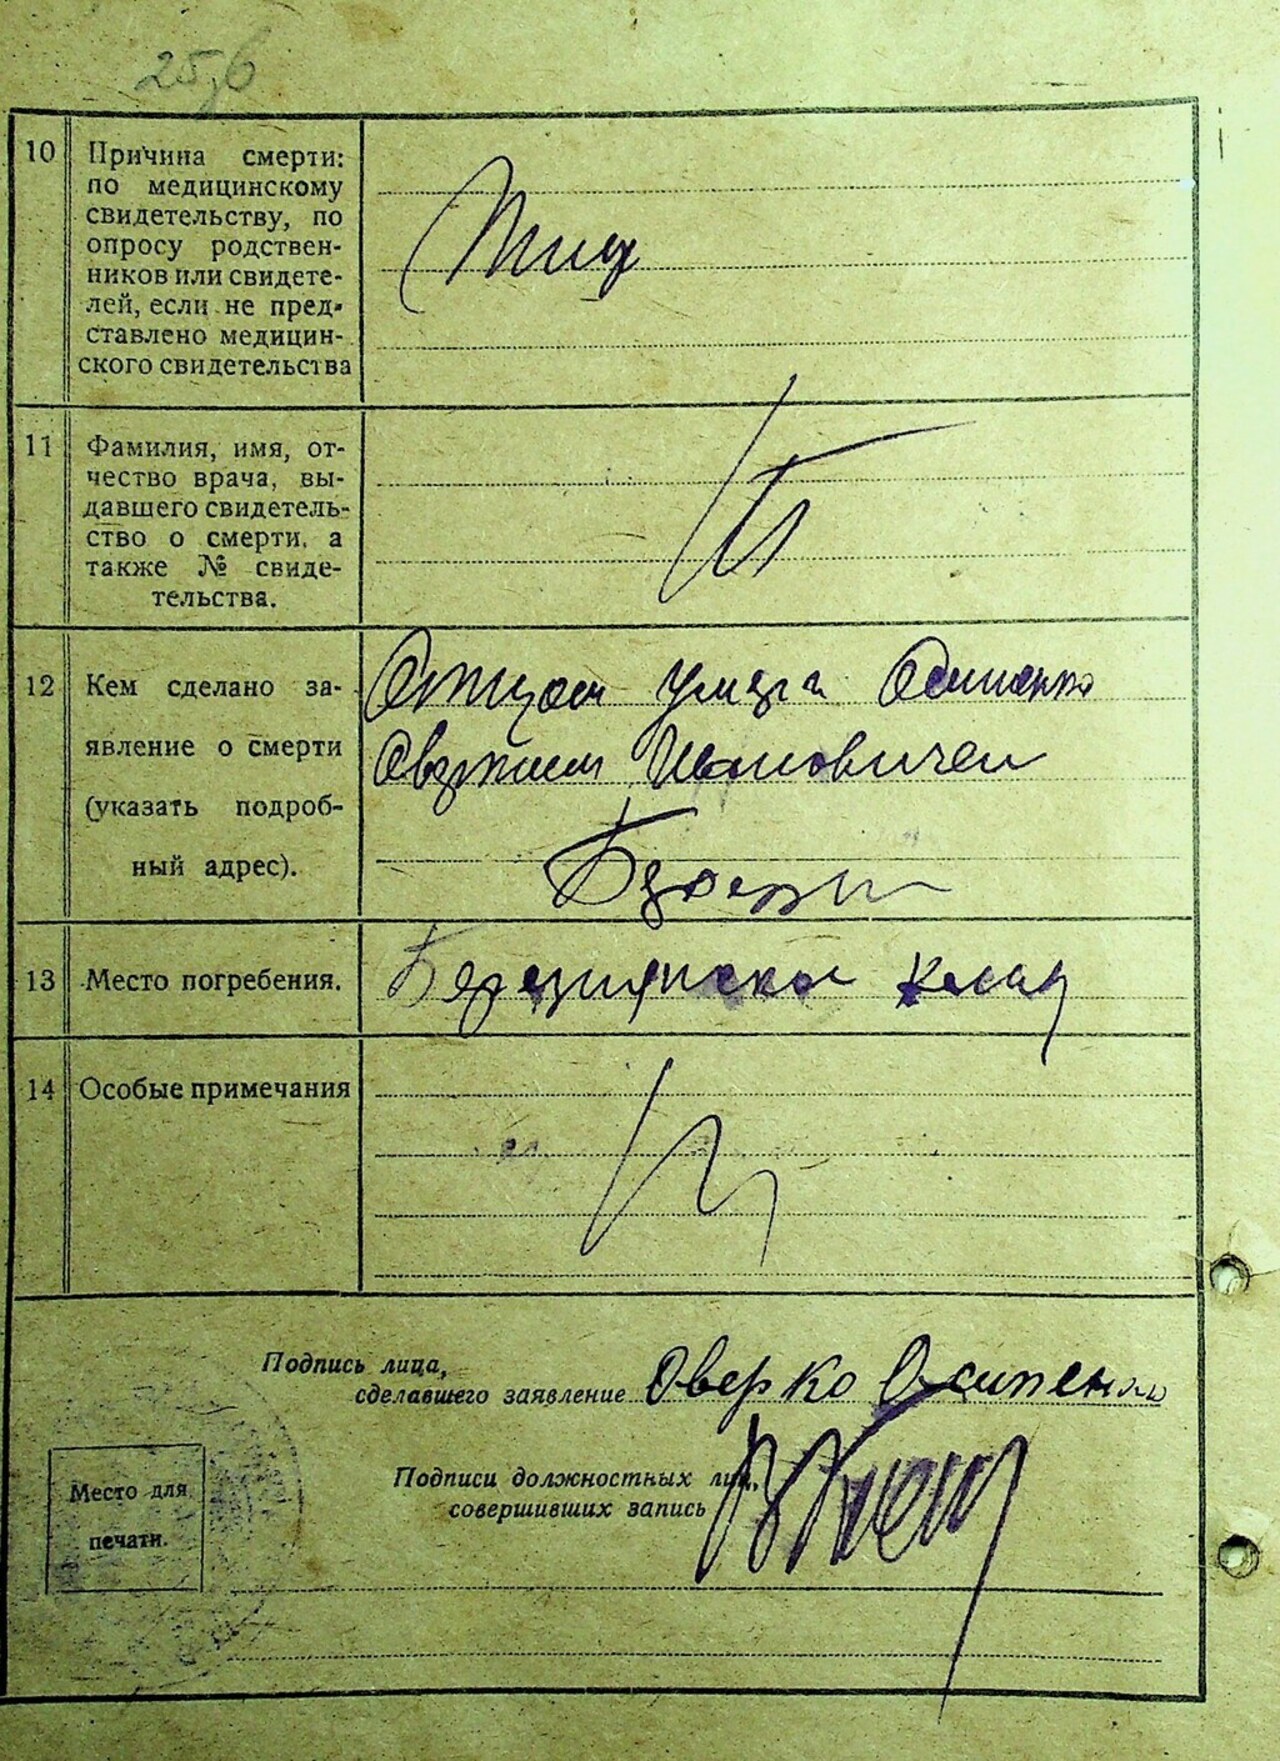 25,6
10 Причина смерти:
по медицинскому
свидетельству, по
опросу родствен-
ников или свидете-
лей, если не пред-
ставлено медицин-
ского свидетельства
11 Фамилия, имя, от-
чество врача, вы-
давшего свидетель-
ство о смерти, а
также № свиде-
тельства.
12 Кем сделано за-
явление о смерти
(указать подроб-
ный адрес).
Отцом Осипенко
Ивановичем
13 Место погребения.
14 Особые примечания
Подпись лица,
сделавшего заявление Оверко Осипенко
Подписи должностных лиц,
совершивших запись
Место для
печати.